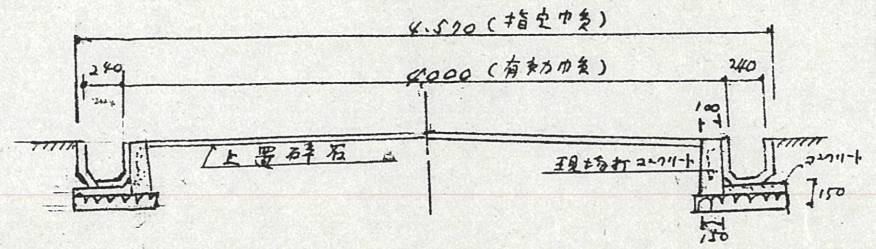 4.570(指定巾員)
240
4000(有効巾員)
240
100
上置砕石
現場打コンクリート
コンクリート
150
150